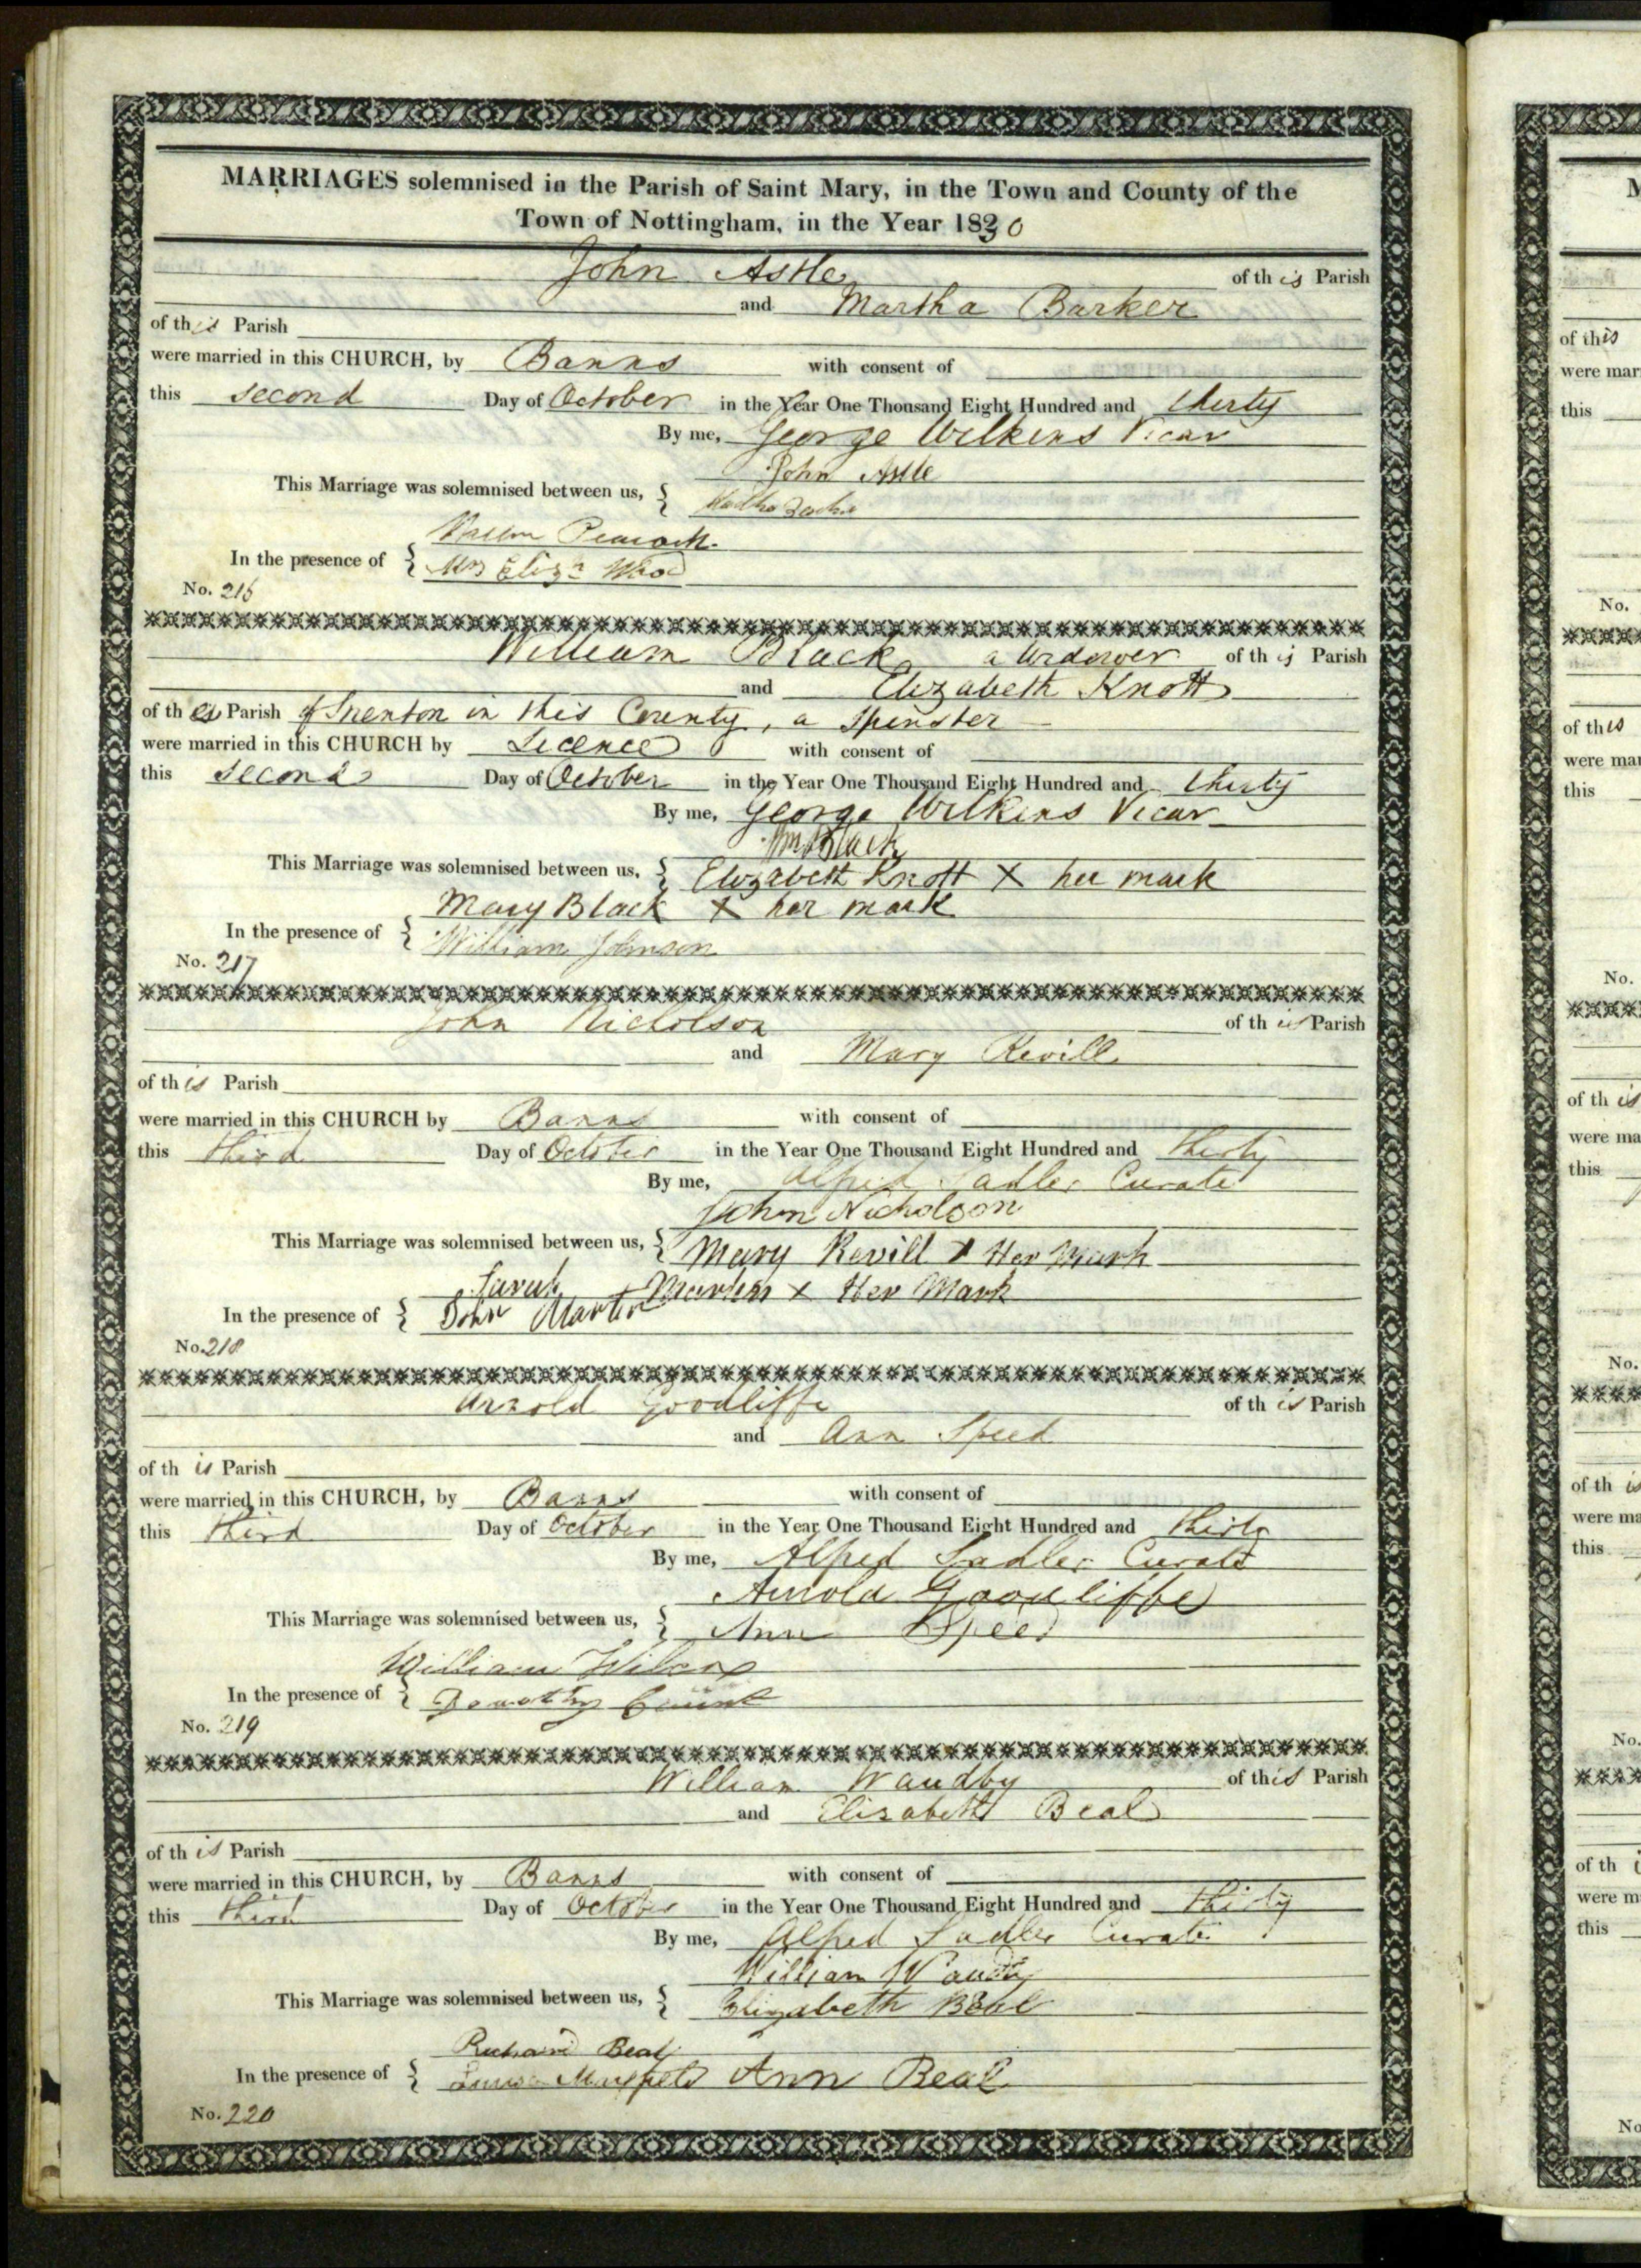 MARRIAGES solemnised in the Parish of Saint Mary, in the Town and County of the
Town of Nottingham, in the Year 1830
John Astle of this Parish
and Martha Barker
of this Parish
were married in this CHURCH, by Banns with consent of
this second Day of October in the Year One Thousand Eight Hundred and thirty
By me, George Wilkins Vicar
John Astle
This Marriage was solemnised between us,
In the presence of
Mrs Eliza Wood
No. 216
William Black, a Widower of this Parish
and Elizabeth Knott
of the Parish of Snenton in this County, a Spinster
were married in this CHURCH by Licence with consent of
this second Day of October in the Year One Thousand Eight Hundred and thirty
By me, George Wilkins Vicar
Wm Black
This Marriage was solemnised between us, Elizabeth Knott X her mark
Mary Black X her mark
In the presence of William Johnson
No. 217
John Nicholson of this Parish
and Mary Revill
of this Parish
were married in this CHURCH by Banns with consent of
this third Day of October in the Year One Thousand Eight Hundred and thirty
By me, Alfred Sadler Curate
John Nicholson
This Marriage was solemnised between us, Mary Revill X Her Mark
Sarah X Her Mark
In the presence of John Martin
No. 218
Arnold Goodliffe of this Parish
and Ann Speed
of this Parish
were married in this CHURCH, by Banns with consent of
this third Day of October in the Year One Thousand Eight Hundred and thirty
By me, Alfred Sadler Curate
Arnold Goodliffe
This Marriage was solemnised between us, Ann Speed
William Wilcox
In the presence of Dorothy
No. 219
William Waudby of this Parish
and Elizabeth Beal
of this Parish
were married in this CHURCH, by Banns with consent of
this third Day of October in the Year One Thousand Eight Hundred and thirty
By me, Alfred Sadler Curate
William Waudby
This Marriage was solemnised between us, Elizabeth Beal
Richard Beal
In the presence of Ann Beal
No. 220